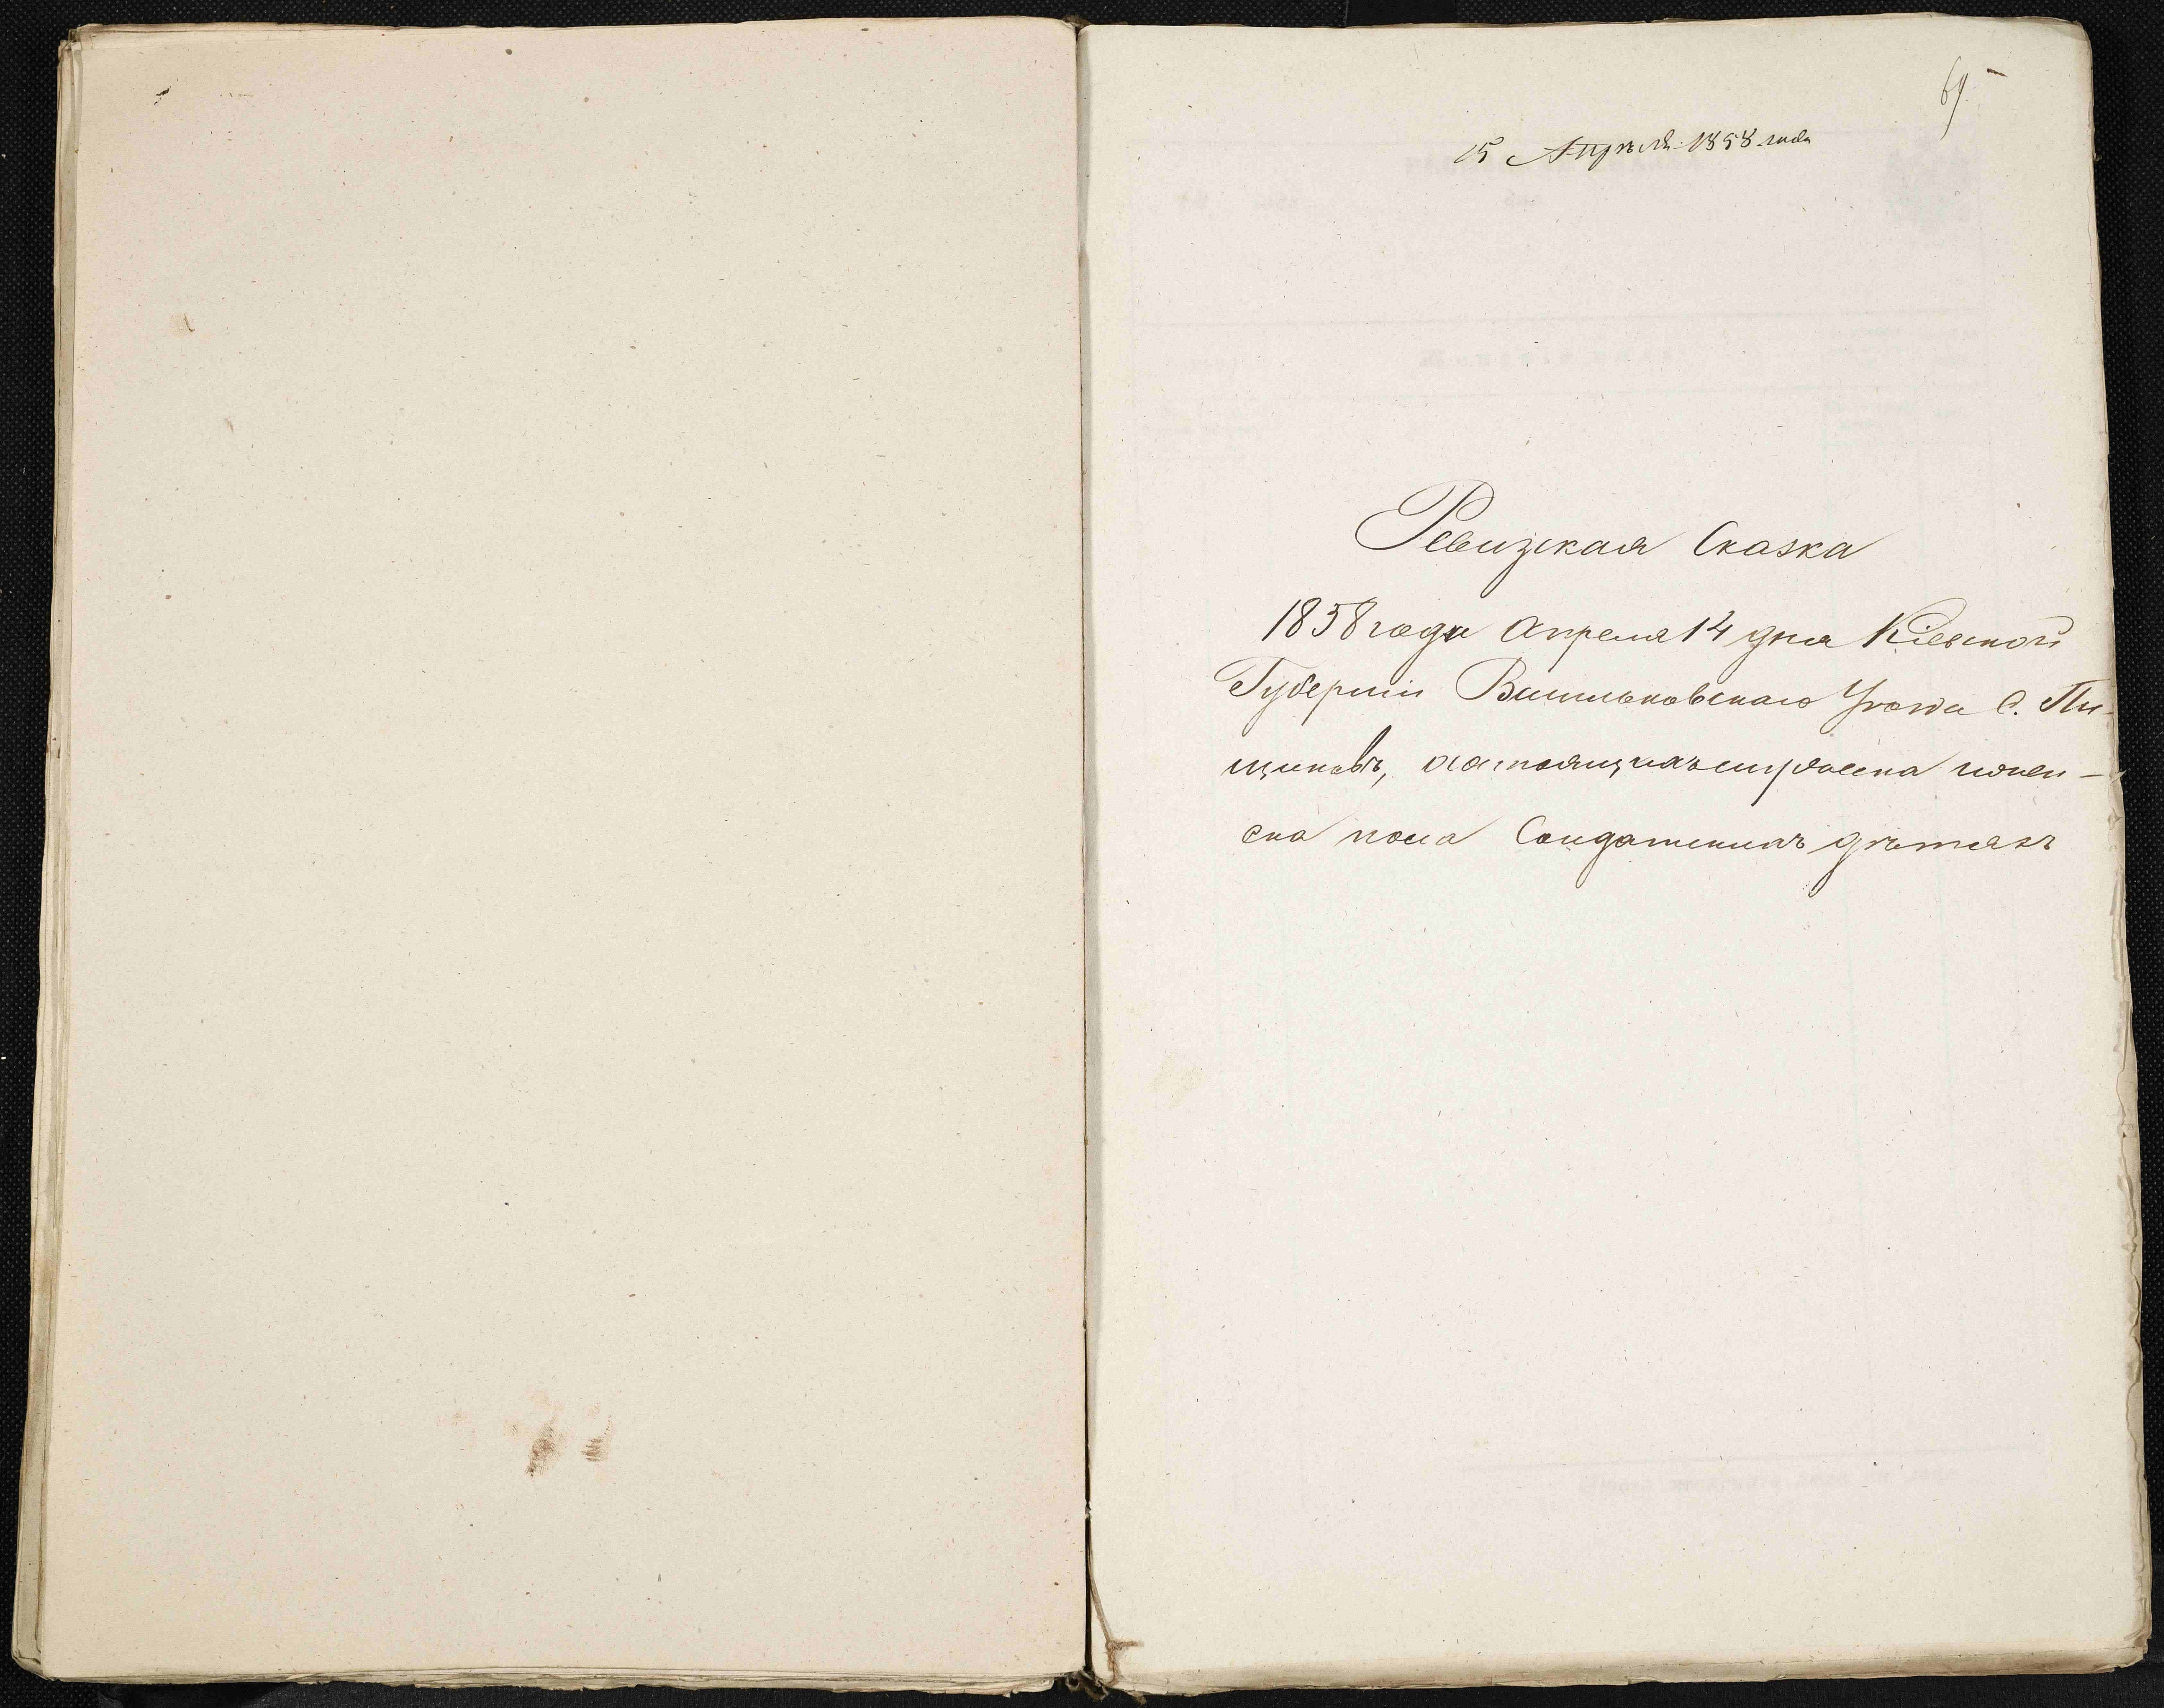 69.
15 Апрѣля 1858 года
Ревизская Сказка
1858 года Апреля 14 дня Кіевской
Губерніи Васильковскаго Уѣзда С. Пи-
щиковъ, о состоящихъ мужеска и жен-
ска пола Солдатскихъ дѣтяхъ